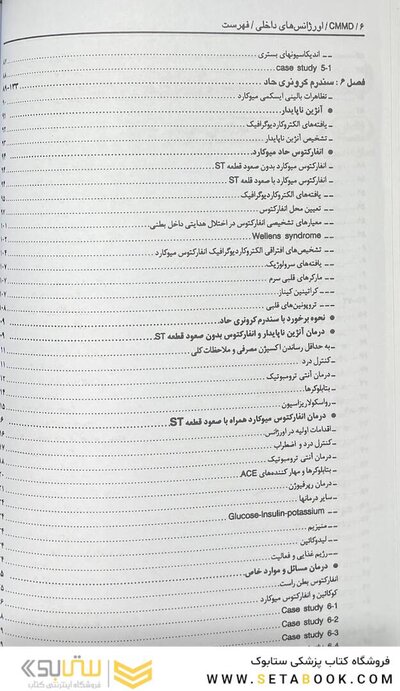 ۶ / CMMD / اورژانس‌های داخلی / فهرست
ــ اندیکاسیونهای بستری
case study 5-1
فصل ۶ : سندرم کرونری حاد
ــ تظاهرات بالینی ایسکمی میوکارد
● آنژین ناپایدار
ــ یافته‌های الکتروکاردیوگرافیک
ــ تشخیص آنژین ناپایدار
● انفارکتوس حاد میوکارد
ــ انفارکتوس میوکارد بدون صعود قطعه ST
ــ انفارکتوس میوکارد با صعود قلعه ST
ــ یافته‌های الکتروکاردیوگرافیک
ــ تعیین محل انفارکتوس
ــ معیارهای تشخیصی انفارکتوس در اختلال هدایتی داخل بطنی
ــ Wellens syndrome
ــ تشخیص‌های افتراقی الکتروکاردیوگرافیک انفارکتوس میوکارد
ــ یافته‌های سرولوژیک
ــ مارکرهای قلبی سرم
ــ کراتینین کیناز
ــ تروپونین‌های قلبی
● نحوه برخورد با سندرم کرونری حاد
● درمان آنژین ناپایدار و انفارکتوس بدون صعود قطعه ST
ــ به حداقل رساندن اکسیژن مصرفی و ملاحظات کلی
ــ کنترل درد
ــ درمان آنتی ترومبوتیک
ــ بتابلوکرها
ــ رواسکولاریزاسیون
● درمان انفارکتوس میوکارد همراه با صعود قطعه ST
ــ اقدامات اولیه در اورژانس
ــ کنترل درد و اضطراب
ــ درمان آنتی ترومبوتیک
ــ بتابلوکرها و مهار کننده‌های ACE
ــ درمان رپرفیوژن
ــ سایر درمانها
ــ Glucose-Insulin-potassium
ــ منیزیم
ــ لیدوکائین
ــ رژیم غذایی و فعالیت
● درمان مسائل و موارد خاص
انفارکتوس بطن راست
کوکائین و انفارکتوس میوکارد
Case study 6-1
Case study 6-2
Case study 6-3
فروشگاه کتاب پزشکی ستابوک
WWW.SETABOOK.COM
ستابوک
فروشگاه اینترنتی کتاب